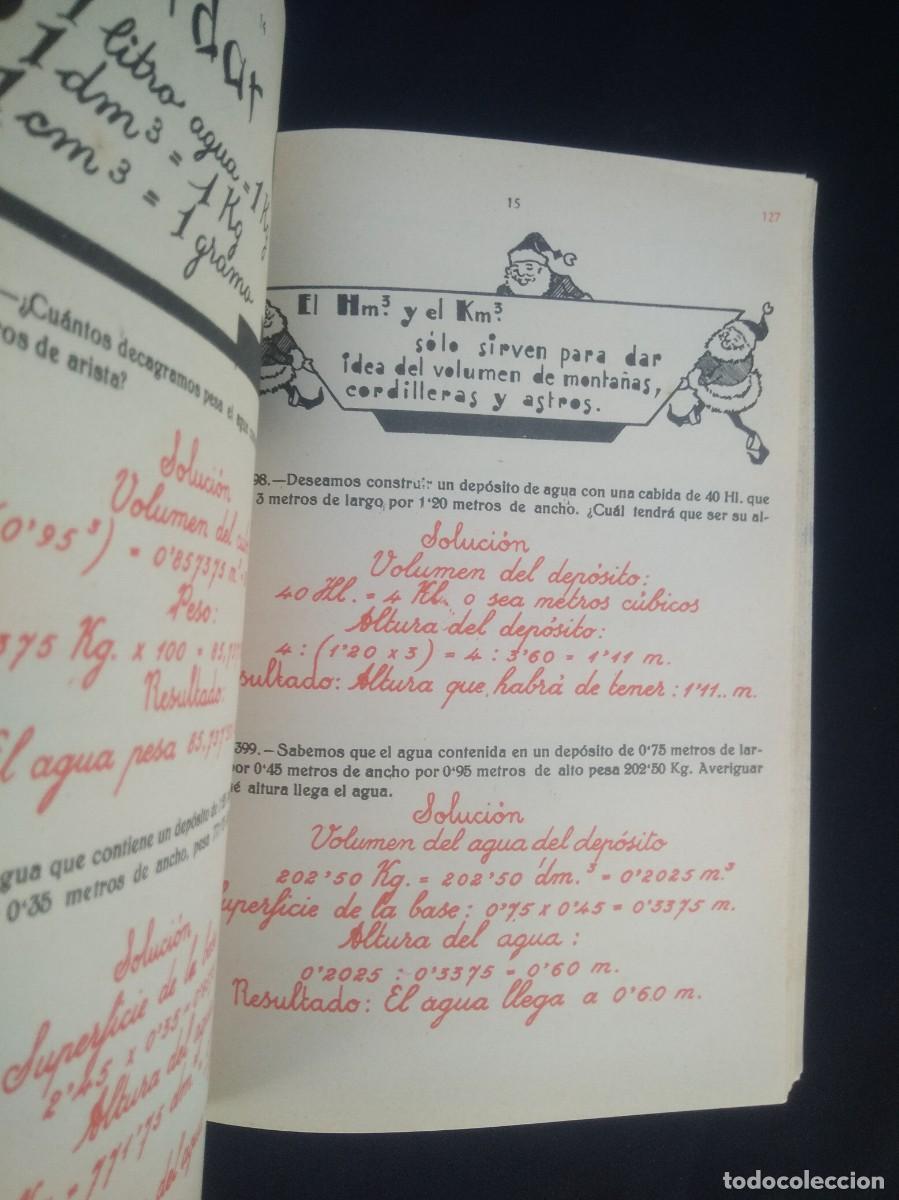 1 litro agua = 1 K
1 dm³ = 1 Kg
1 cm³ = 1 gramo
—¿Cuántos decagramos pesa el agua
ros de arista?
Solución
Volumen del
(0'95³) = 0'857375 m³
Peso:
375 Kg. x 100 = 85,7
Resultado:
El agua pesa 85,737
gua que contiene un depósito de
0'35 metros de ancho, pesa 77
Solución
Superficie de la base
2'45 x 0'35 = 0'
Altura del
= 771'75 dm
del
15
127
El Hm³. y el Km³.
sólo sirven para dar
idea del volumen de montañas,
cordilleras y astros.
98.—Deseamos construir un depósito de agua con una cabida de 40 Hl. que
3 metros de largo por 1'20 metros de ancho. ¿Cuál tendrá que ser su al-
Solución
Volumen del depósito:
40 Hl. = 4 Kl. o sea metros cúbicos
Altura del depósito:
4 : (1'20 x 3) = 4 : 3'60 = 1'11 m.
sultado: Altura que habrá de tener : 1'11.. m.
399.—Sabemos que el agua contenida en un depósito de 0'75 metros de lar-
por 0'45 metros de ancho por 0'95 metros de alto pesa 202'50 Kg. Averiguar
é altura llega el agua.
Solución
Volumen del agua del depósito
202'50 Kg. = 202'50 dm.³ = 0'2025 m.³
Superficie de la base: 0'75 x 0'45 = 0'3375 m.
Altura del agua :
0'2025 : 0'3375 = 0'60 m.
Resultado: El agua llega a 0'60 m.
todocoleccion